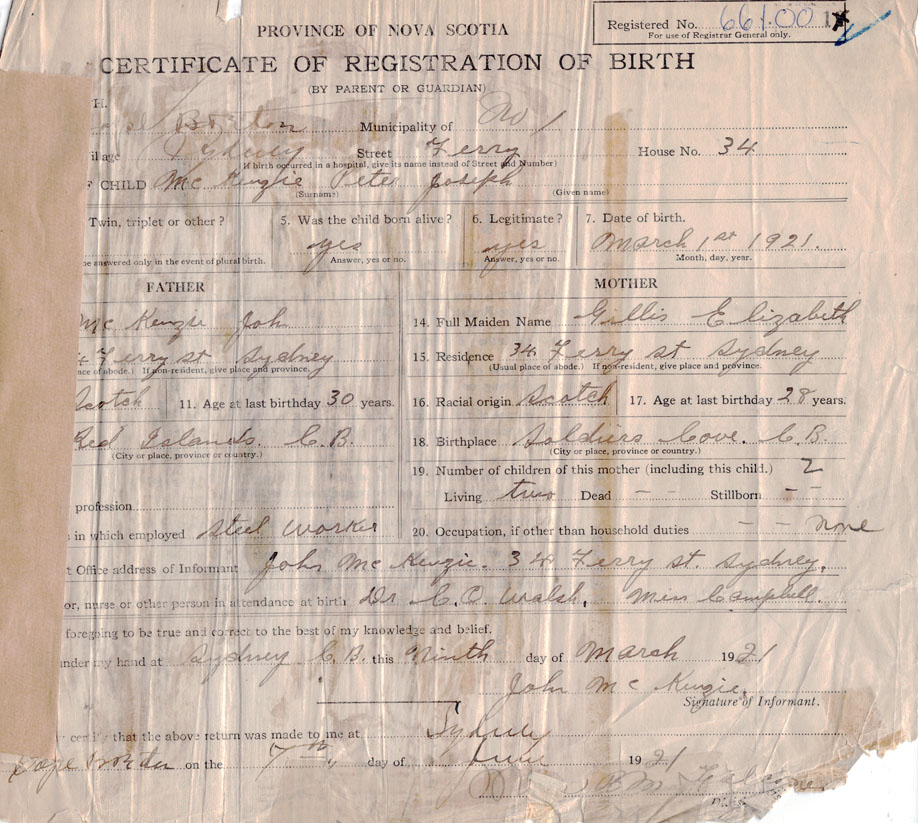 PROVINCE OF NOVA SCOTIA
Registered No. 66100
For use of Registrar General only.
CERTIFICATE OF REGISTRATION OF BIRTH
(BY PARENT OR GUARDIAN)
H.
Breton Municipality of
illage Sydney Street Ferry House No. 34
If birth occurred in a hospital, give its name instead of Street and Number)
F CHILD McKenzie Peter Joseph
(Surname) (Given name)
Twin, triplet or other? 5. Was the child born alive? 6. Legitimate? 7. Date of birth.
yes yes March 1st 1921.
be answered only in the event of plural birth. Answer, yes or no. Answer, yes or no. Month, day, year.
FATHER MOTHER
McKenzie John 14. Full Maiden Name Gillis Elizabeth
4 Ferry st Sydney 15. Residence 34 Ferry st Sydney
nce of abode.) If non-resident, give place and province. (Usual place of abode.) If non-resident, give place and province.
Scotch 11. Age at last birthday 30 years. 16. Racial origin Scotch 17. Age at last birthday 28 years.
Red Islands. C.B. 18. Birthplace Soldiers Cove. C.B.
(City or place, province or country.) (City or place, province or country.)
19. Number of children of this mother (including this child.) 2
Living two Dead - - Stillborn - -
profession
in which employed Steel Worker 20. Occupation, if other than household duties - - none
t Office address of Informant John McKenzie. 34 Ferry st. Sydney.
or, nurse or other person in attendance at birth Dr C.O. Walsh, Miss Campbell.
foregoing to be true and correct to the best of my knowledge and belief.
under my hand at Sydney C.B. this Ninth day of March 1921
John McKenzie.
Signature of Informant.
y certify that the above return was made to me at Sydney
Cape Breton on the 7th day of June 1921